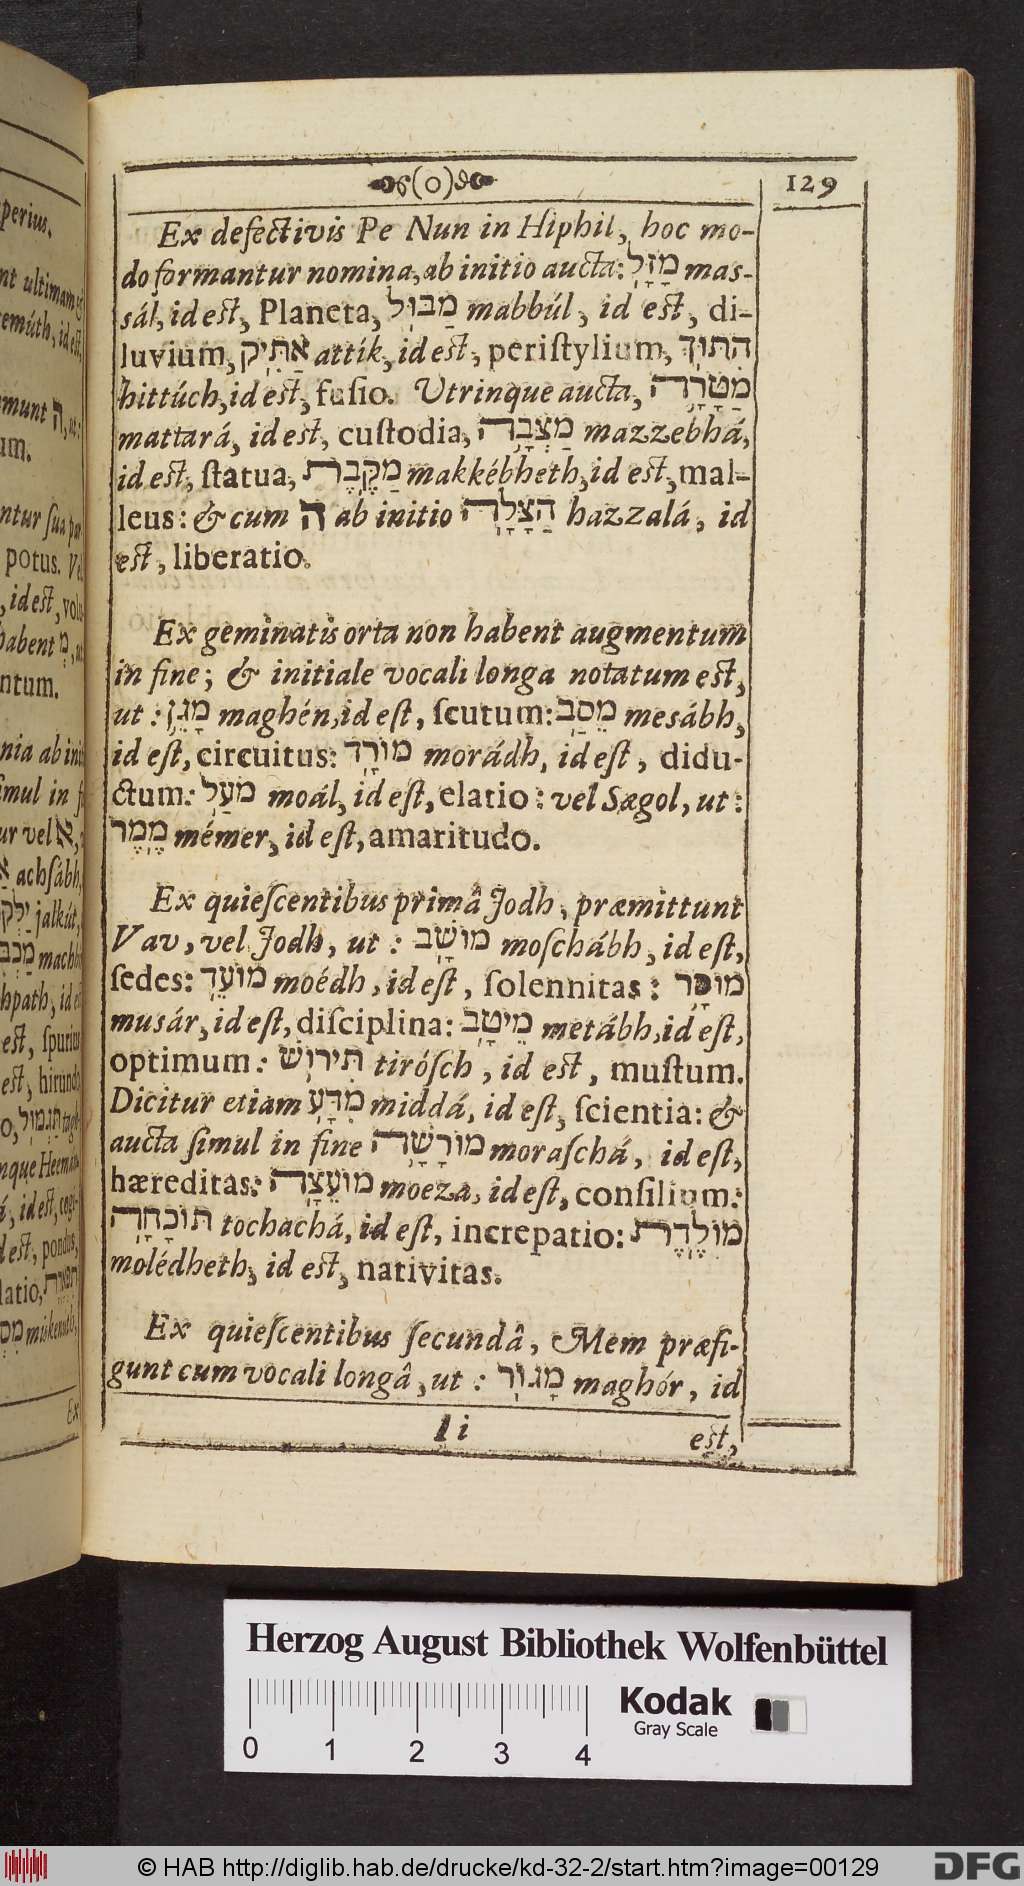 perius.
nt ultimam
emúth, id est,
munt ה, ut:
um.
ntur sua
potus. Vel
, id est, volu-
habent מְ, ut
ntum.
nia ab ini-
simul in
ur vel אֶ,
achsábh,
jalkút,
id est
est, spurius
est, hirundo
nque Heeman-
í, id est, cogi-
dest, pondus,
latio,
Ex
(0) 129
Ex defectivis Pe Nun in Hiphil, hoc mo-
do formantur nomina, ab initio aucta: מָזָּל mas-
sál, id est, Planeta, מַבּוּל mabbúl, id est, di-
luvium, אַתִּיק attík, id est, peristylium, התוּךְ
hittúch, id est, fusio. Utrinque aucta, מַטָּרָה
mattará, id est, custodia, מַצְּבָה mazzebhá,
id est, statua, מַקֶּבֶת makkébheth, id est, mal-
leus: & cum ה ab initio הַצָּלָה hazzalá, id
est, liberatio.
Ex geminatis orta non habent augmentum
in fine; & initiale vocali longa notatum est,
ut: מָגֵן maghén, id est, scutum: מֵסַב mesábh,
id est, circuitus: מוֹרָד morádh, id est, didu-
ctum: מֹעַל moál, id est, elatio: vel Sægol, ut:
מֶמֶר mémer, id est, amaritudo.
Ex quiescentibus primâ Jodh, præmittunt
Vav, vel Jodh, ut: מוֹשָׁב moschábh, id est,
sedes: מוֹעֵד moédh, id est, solennitas: מוּסָר
musár, id est, disciplina: מֵיטָב metábh, id est,
optimum: תִּירוֹשׁ tirósch, id est, mustum.
Dicitur etiam מִדָּע middá, id est, scientia: &
aucta simul in fine מוֹרָשָׁה moraschá, id est,
hæreditas: מוֹעֵצָה moeza, id est, consilium:
תּוֹכָחָה tochachá, id est, increpatio: מוֹלֶדֶת
molédheth, id est, nativitas.
Ex quiescentibus secundâ, Mem præfi-
gunt cum vocali longâ, ut: מָגוֹר maghór, id
I i est,
Herzog August Bibliothek Wolfenbüttel
Kodak
Gray Scale
0 1 2 3 4
© HAB http://diglib.hab.de/drucke/kd-32-2/start.htm?image=00129 DFG